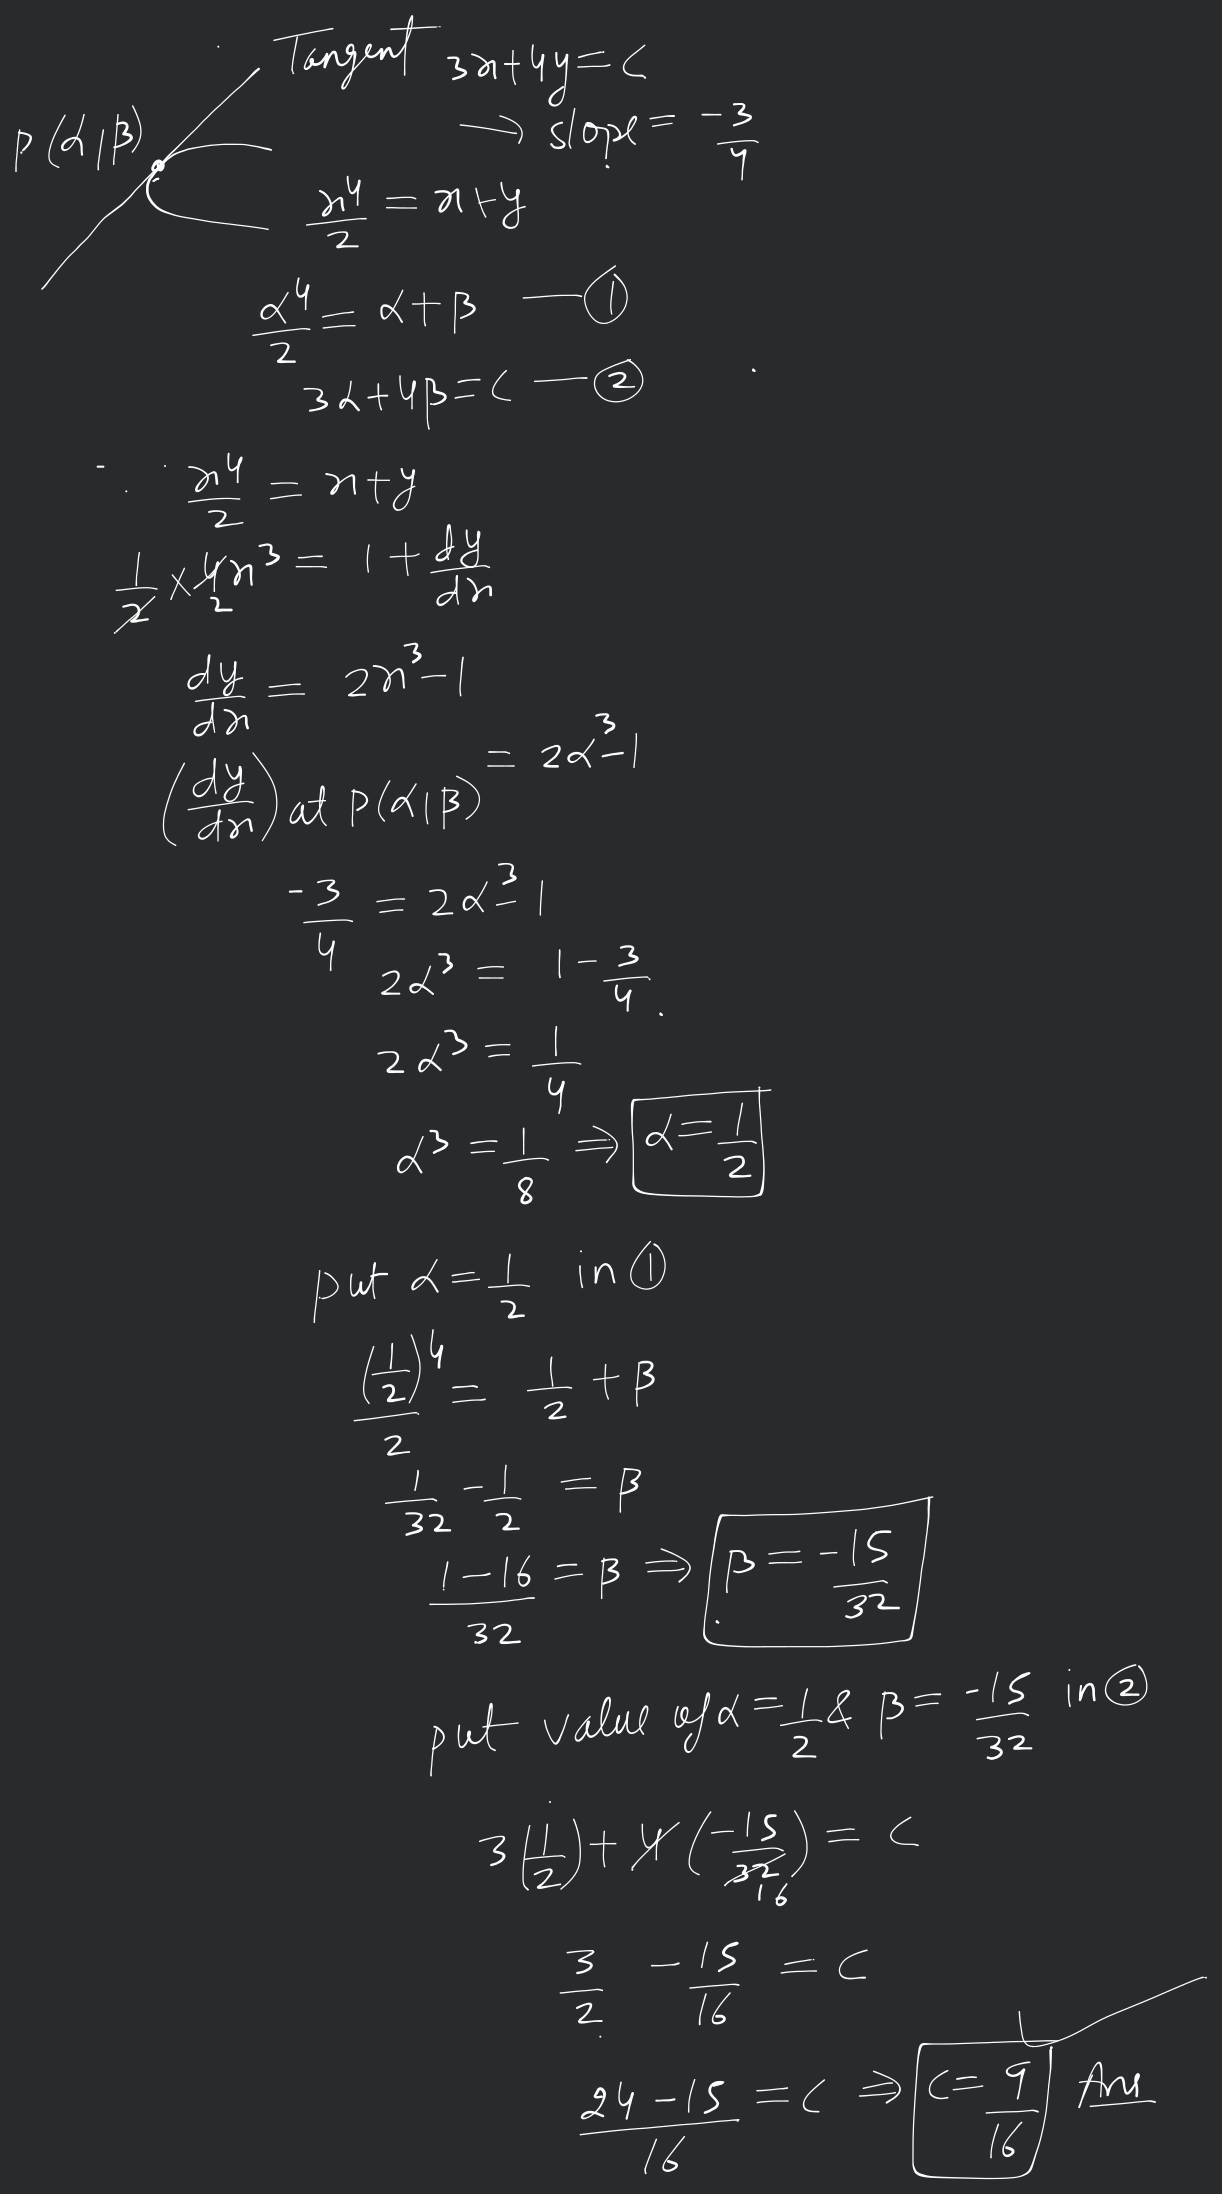 Tangent 3x+4y=c
P(α,β) → slope = -3/4
x⁴/2 = x+y
α⁴/2 = α+β —①
3α+4β=c —②
∵ x⁴/2 = x+y
1/2 × 4x³ = 1 + dy/dx
2
dy/dx = 2x³-1
(dy/dx) at P(α,β) = 2α³-1
-3/4 = 2α³-1
2α³ = 1 - 3/4
2α³ = 1/4
α³ = 1/8 ⇒ α = 1/2
put α = 1/2 in ①
(1/2)⁴/2 = 1/2 + β
1/32 - 1/2 = β
1-16/32 = β ⇒ β = -15/32
put value of α = 1/2 & β = -15/32 in ②
3(1/2) + 4(-15/32) = c
16
3/2 - 15/16 = c
24-15/16 = c ⇒ c = 9/16 Ans